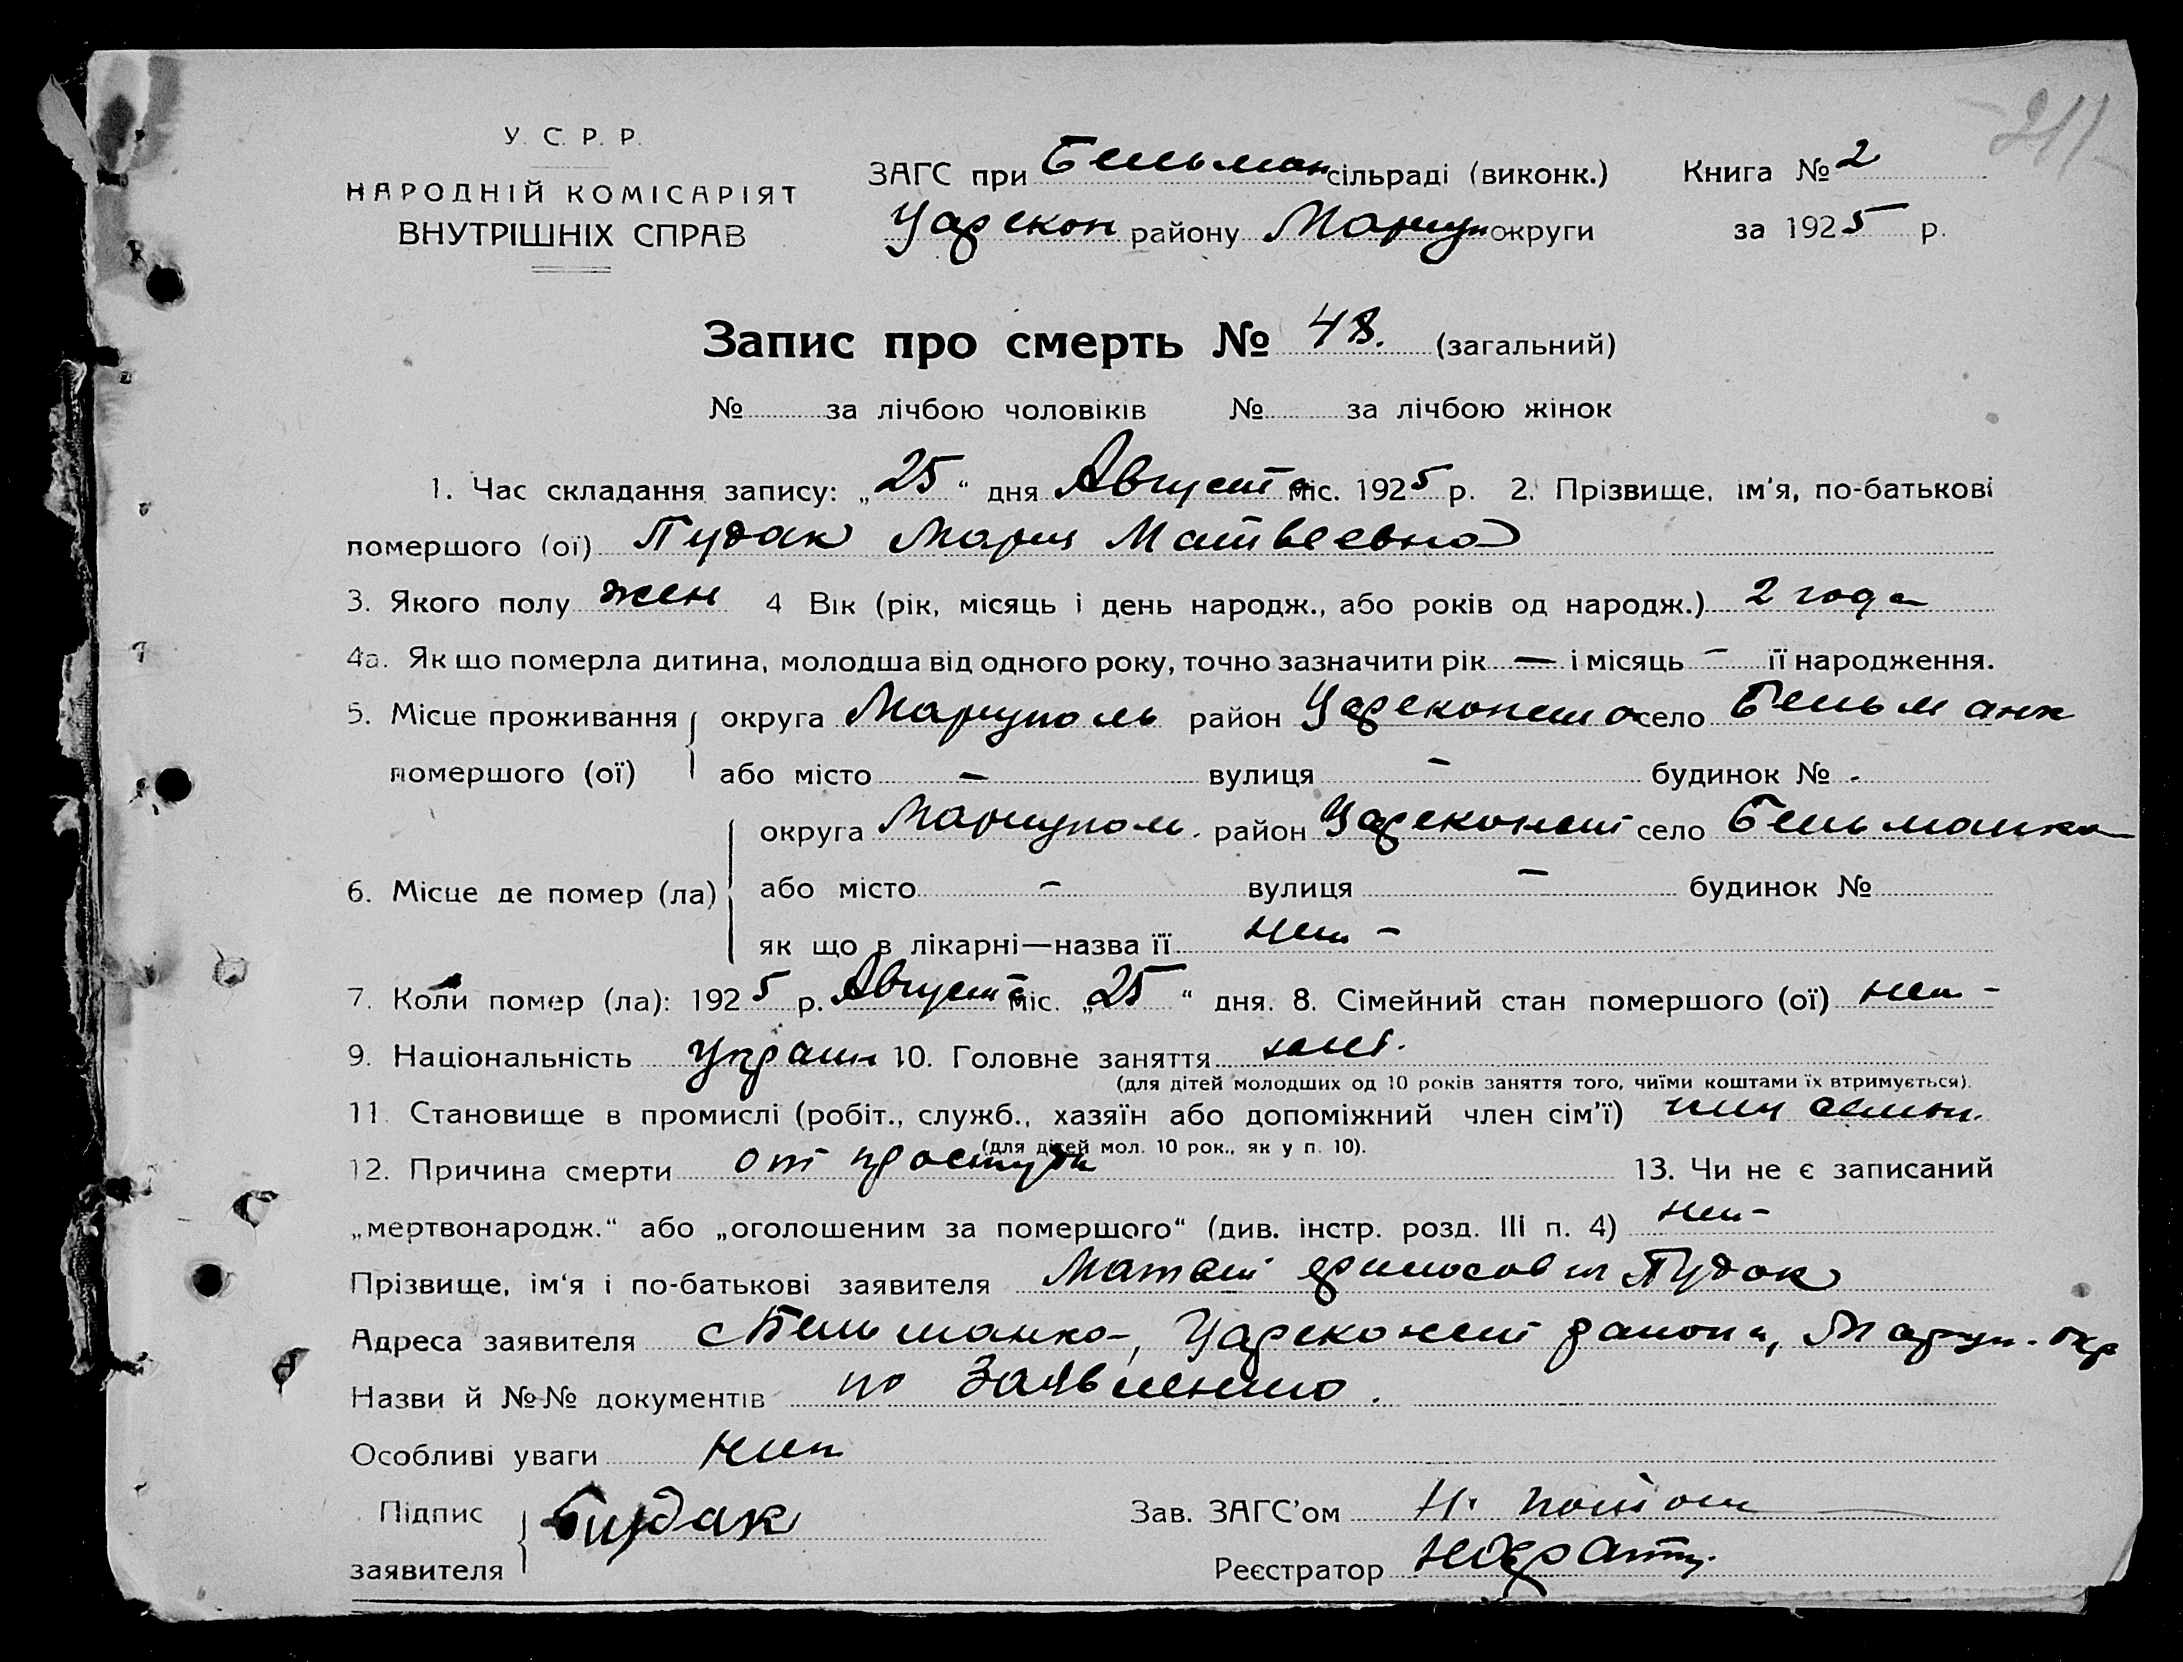 211
У. С. Р. Р.
НАРОДНІЙ КОМІСАРІЯТ
ВНУТРІШНІХ СПРАВ
ЗАГС при Бельман сільраді (виконк.) Книга № 2
Царскон району Мариуп округи за 1925 р.
Запис про смерть № 48. (загальний)
№ за лічбою чоловіків № за лічбою жінок
1. Час складання запису: „25“ дня Августа міс. 1925 р. 2. Прізвище, ім'я, по-батькові
помершого (ої) Пудак Мария Матвеевна
3. Якого полу жен 4 Вік (рік, місяць і день народж., або років од народж.) 2 года
4а. Як що померла дитина, молодша від одного року, точно зазначити рік — і місяць — її народження.
5. Місце проживання округа Мариуполь район Царсконст село Бельманк
помершого (ої) або місто — вулиця — будинок № -
округа Мариупол. район Царсконст село Бельманка
6. Місце де помер (ла) або місто — вулиця — будинок №
як що в лікарні—назва її нет -
7. Коли помер (ла): 1925 р. Августа міс. „25“ дня. 8. Сімейний стан помершого (ої) нет -
9. Національність Украин 10. Головне заняття
(для дітей молодших од 10 років заняття того, чиїми коштами їх втримується).
11. Становище в промислі (робіт., служб., хазяїн або допоміжний член сім'ї) член семьи.
(для дітей мол. 10 рок., як у п. 10).
12. Причина смерти от простуди 13. Чи не є записаний
„мертвонародж.“ або „оголошеним за помершого“ (див. інстр. розд. III п. 4) нет -
Прізвище, ім'я і по-батькові заявителя Матвей Пудак
Адреса заявителя с Бельманка, Царсконст района, Мариуп. окр
Назви й №№ документів по заявлению.
Особливі уваги нет
Підпис
заявителя Пудак
Зав. ЗАГС'ом
Реєстратор